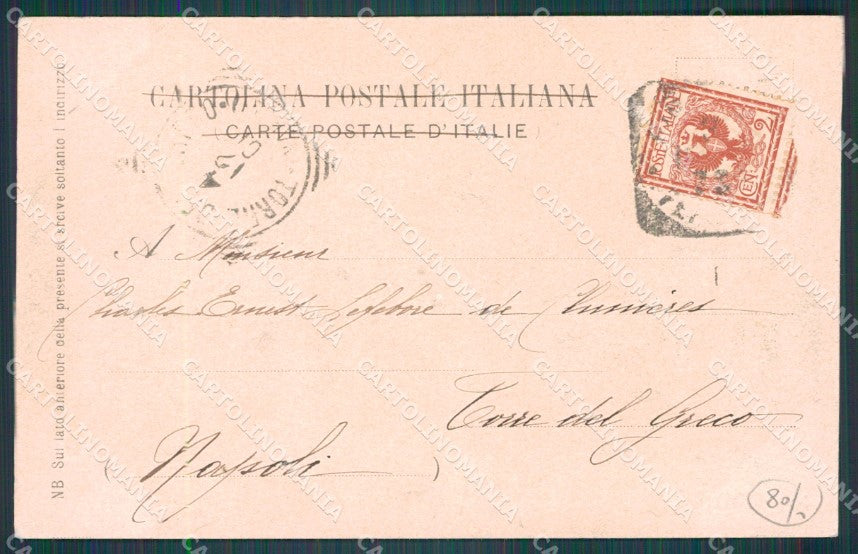 CARTOLINA POSTALE ITALIANA
(CARTE POSTALE D'ITALIE)
POSTE ITALIANE
2
CEN.
TORRE DEL
A Monsieur
Charles Ernest Lefebvre de
Torre del Greco
(Napoli)
NB Sul lato anteriore della presente si scrive soltanto l'indirizzo
80/-
CARTOLINOMANIA